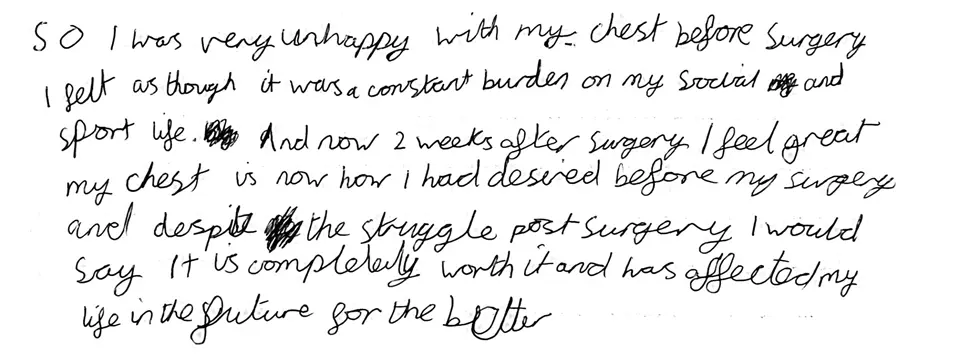 SO I was very unhappy with my chest before surgery
I felt as though it was a constant burden on my social and
sport life. And now 2 weeks after surgery I feel great
my chest is now how I had desired before my surgery
and despite the struggle post surgery I would
say It is completely worth it and has affected my
life in the future for the better